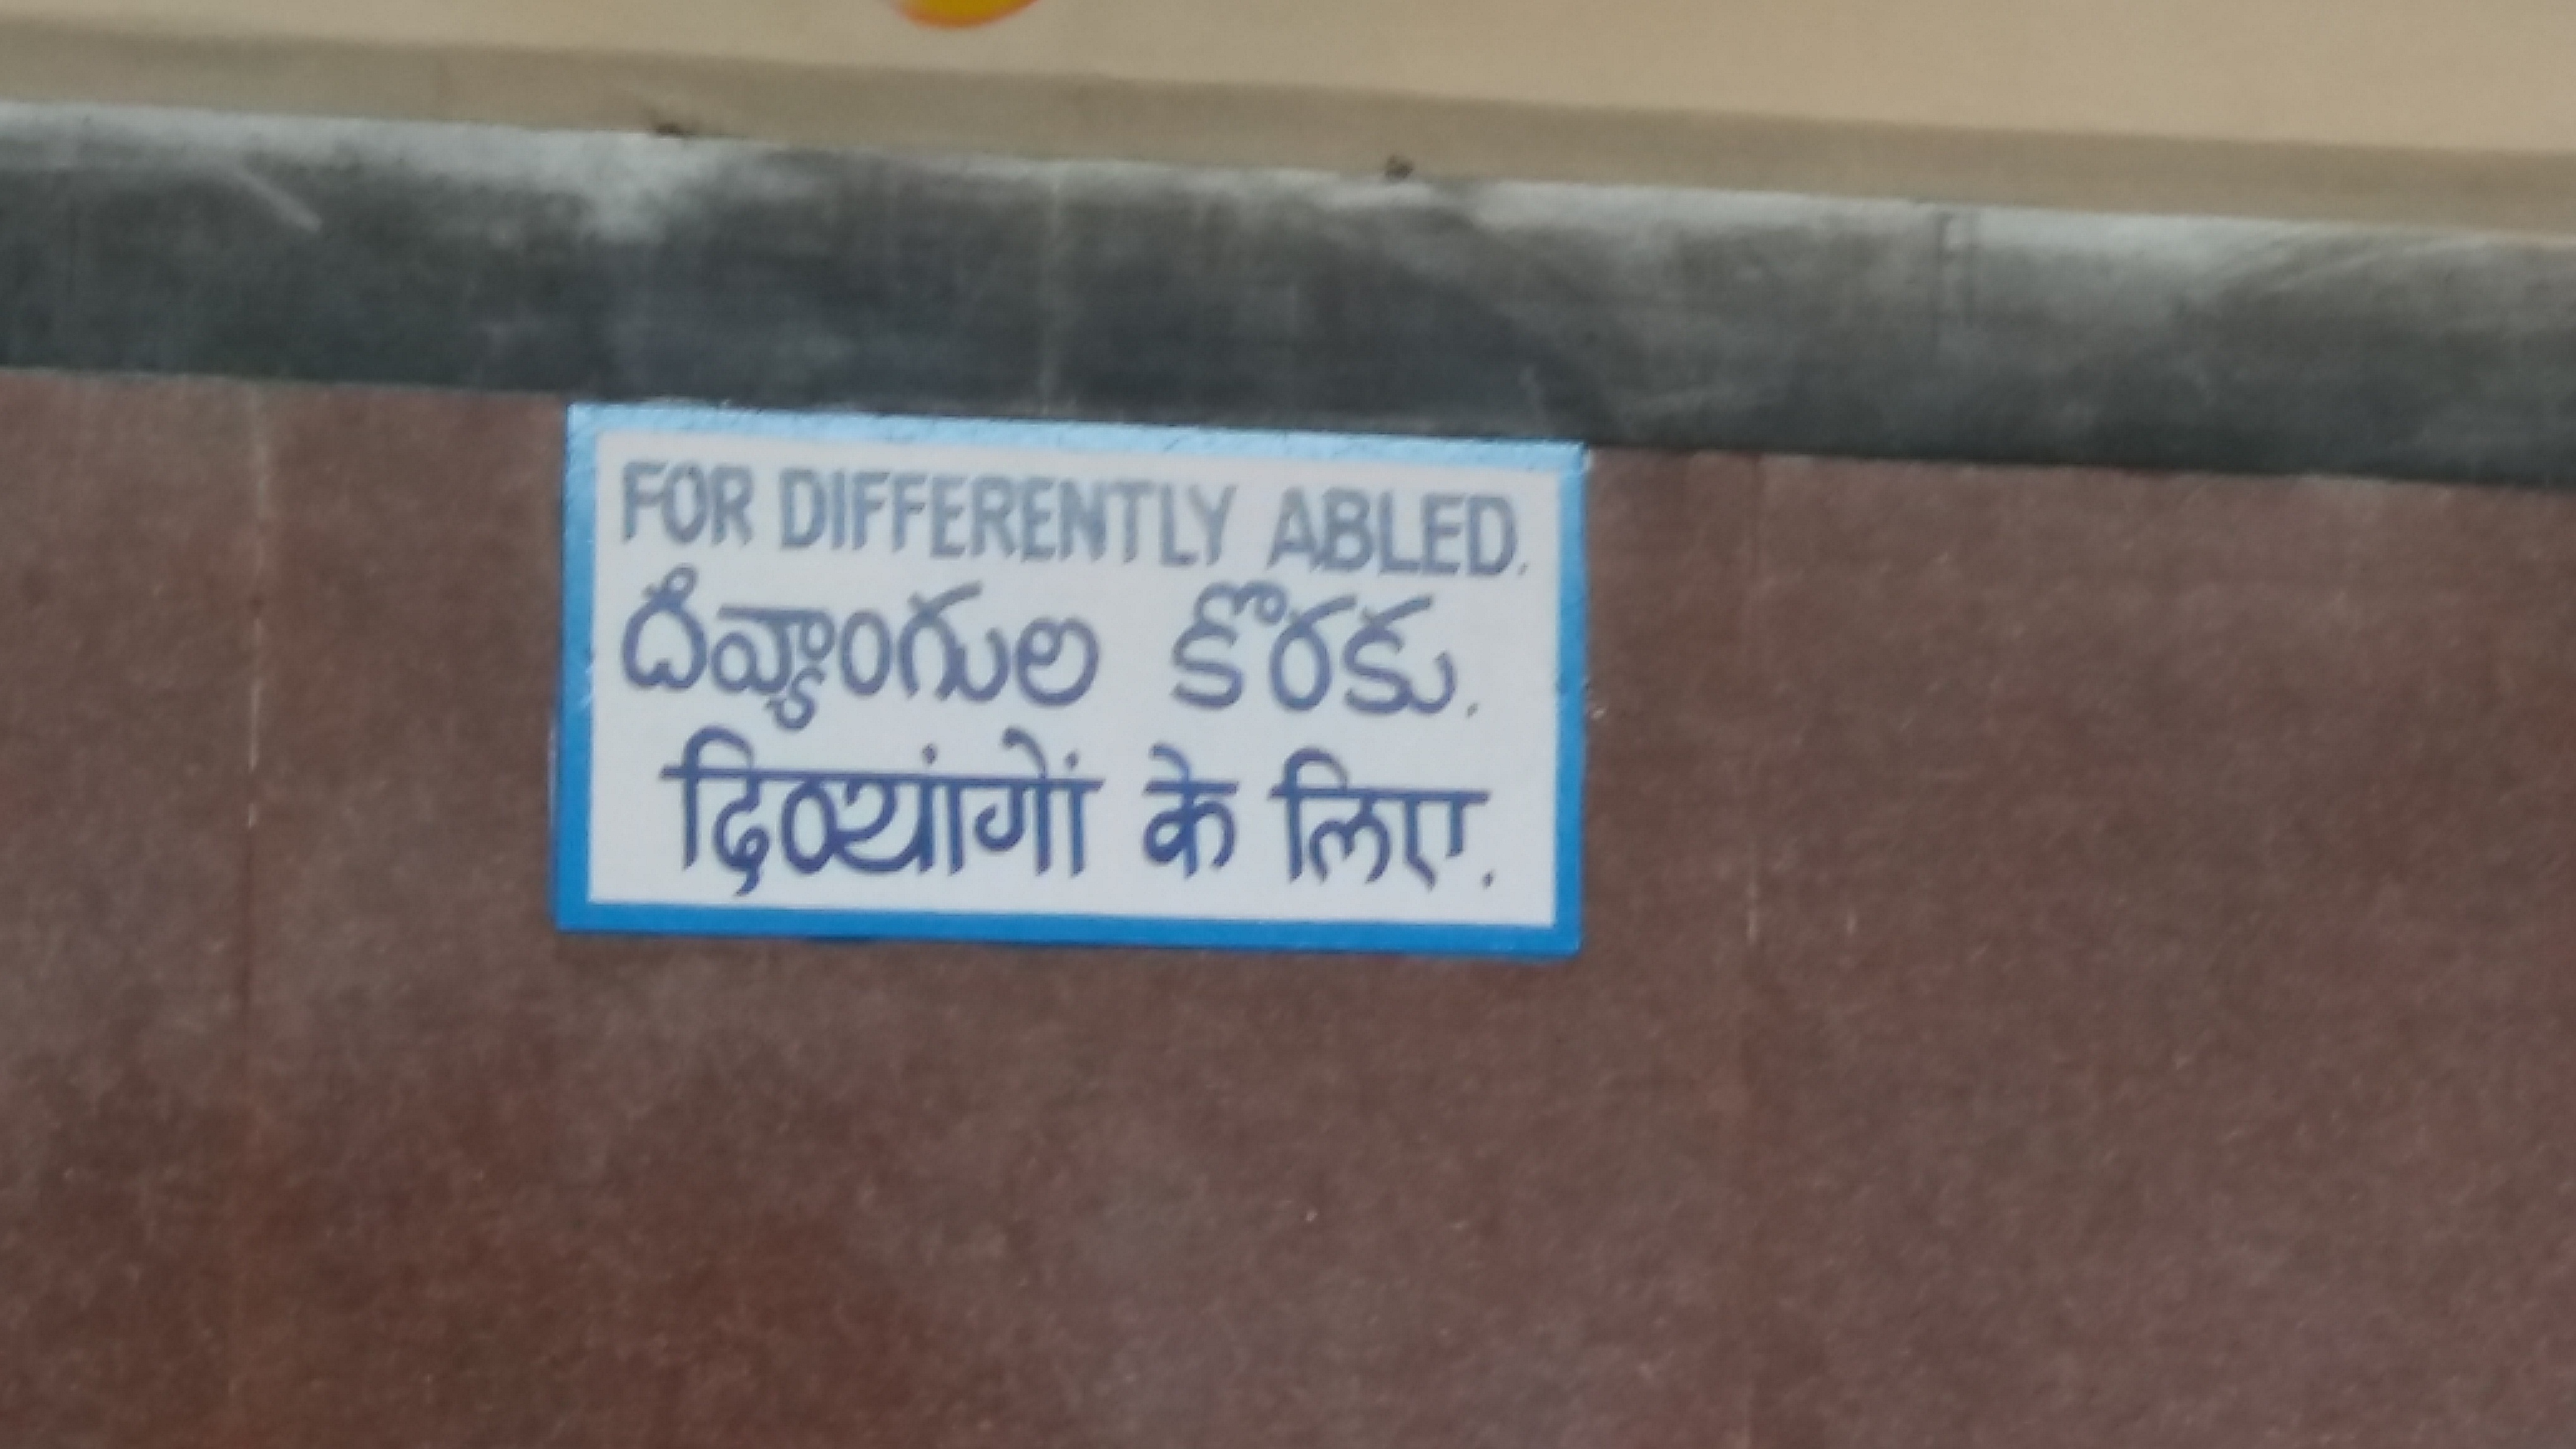 FOR DIFFERENTLY ABLED.
దివ్యాంగుల కొరకు.
दिव्यांगों के लिए.